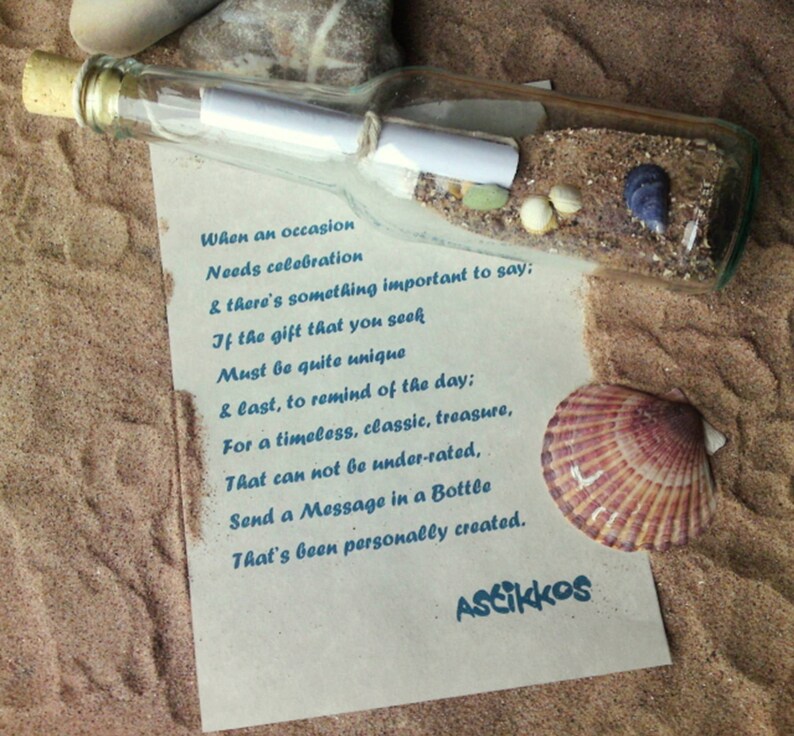 When an occasion
Needs celebration
& there's something important to say;
If the gift that you seek
Must be quite unique
& last, to remind of the day;
For a timeless, classic, treasure,
That can not be under-rated,
Send a Message in a Bottle
That's been personally created.
Astikkos